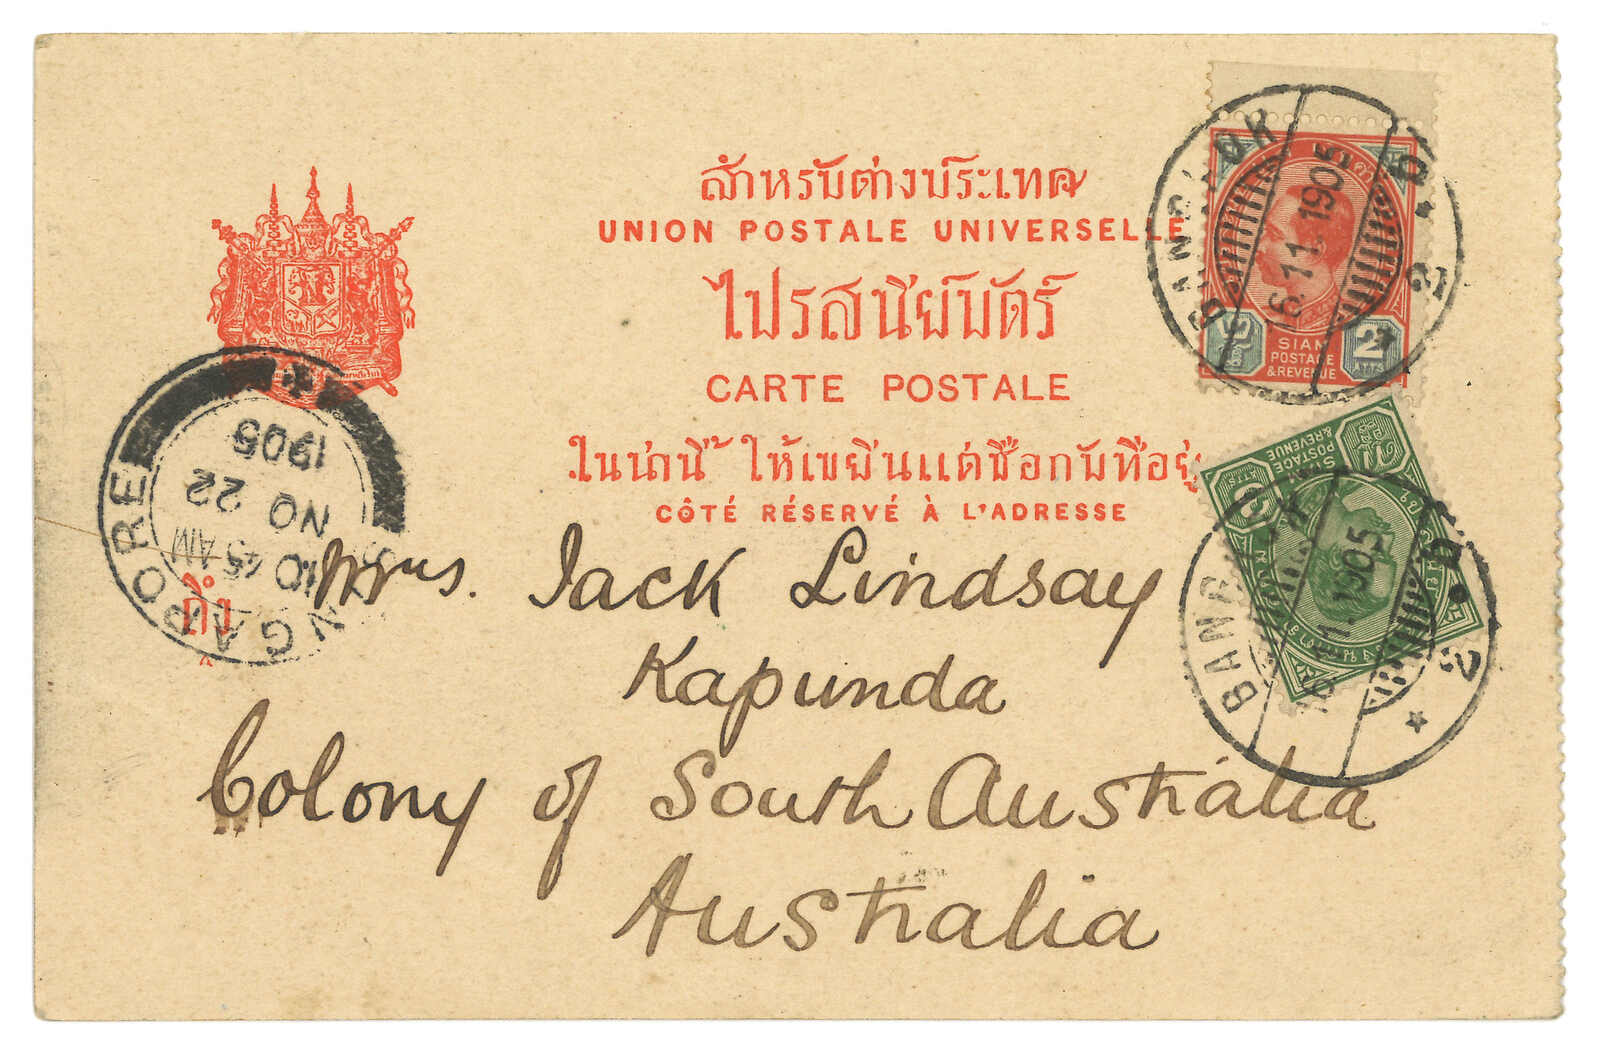 สำหรับต่างประเทศ
UNION POSTALE UNIVERSELLE
ไปรสนีย์บัตร์
CARTE POSTALE
ในน่านี้ ให้เขยีนแต่ชื่อกับที่อยู่
CÔTÉ RÉSERVÉ À L'ADRESSE
ถึง
Mrs. Jack Lindsay
Kapunda
Colony of South Australia
Australia
SINGAPORE
10 45 AM
NO 22
1905
BANGKOK
16.11.1905
2
SIAM
POSTAGE
& REVENUE
2
ATTS
BANGKOK
1905
2
SIAM
POSTAGE
& REVENUE
ATTS